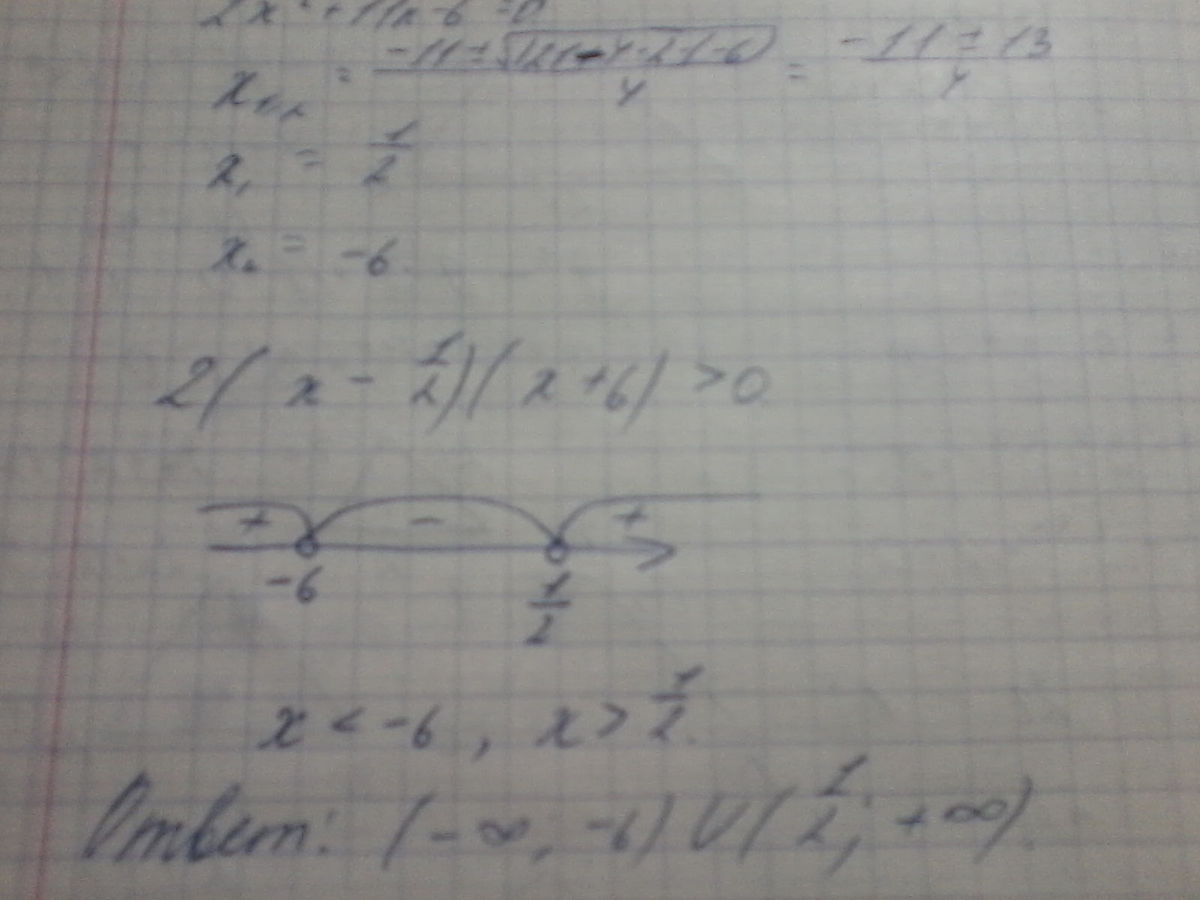 2x² + 11x - 6 = 0
x₁,₂ = (-11 ± √(121 - 4·2·(-6)))/4 = (-11 ± 13)/4
x₁ = 1/2
x₂ = -6
2(x - 1/2)(x + 6) > 0
+ - +
-6 1/2
x < -6, x > 1/2.
Ответ: (-∞, -6) ∪ (1/2; +∞).